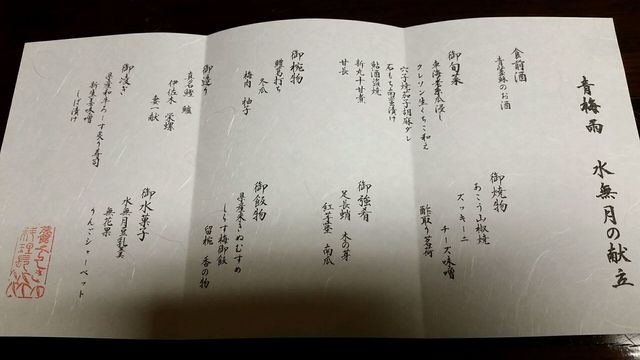 青梅雨 水無月の献立
食前酒
青紫蘇のお酒
御旬菜
車海老素麺瓜浸し
クレソン生くちこ和え
穴子焼茄子胡麻ダレ
石もち南蛮漬け
鮎酒盗焼
新丸十甘煮
甘長
御椀物
鱧葛打ち
冬瓜
梅肉 柚子
御造り
真名鰹 鱸
伊佐木 栄螺
妻一
御凌ぎ
県産和牛ろーす炙り寿司
新生姜味噌
しば漬け
御焼物
あこう山椒焼
ズッキーニ
チーズ味噌
酢取り茗荷
御強肴
足長蛸 木の芽
紅芋茎 南瓜
御飯物
県産米きぬむすめ
しらす梅御飯
留椀 香の物
御水菓子
水無月豆乳羹
無花果
りんごシャーベット